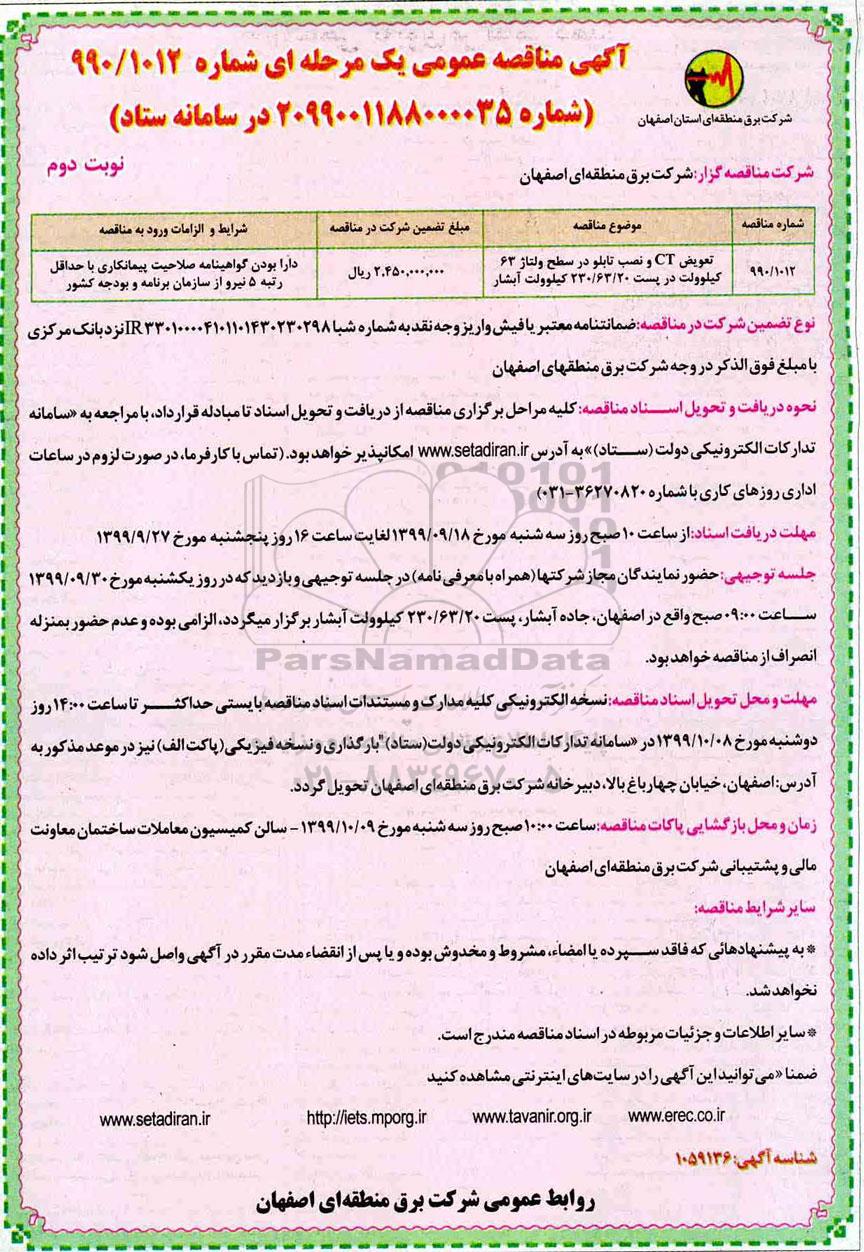 آگهی مناقصه عمومی یک مرحله ای شماره ۹۹۰/۱۰۱۲
(شماره ۲۰۹۹۰۰۱۱۸۸۰۰۰۰۳۵ در سامانه ستاد)
شرکت برق منطقه‌ای استان اصفهان
نوبت دوم
شرکت مناقصه گزار: شرکت برق منطقه‌ای اصفهان
شماره مناقصه	موضوع مناقصه	مبلغ تضمین شرکت در مناقصه	شرایط و الزامات ورود به مناقصه
۹۹۰/۱۰۱۲	تعویض CT و نصب تابلو در سطح ولتاژ ۶۳	۲,۴۵۰,۰۰۰,۰۰۰ ریال	دارا بودن گواهینامه صلاحیت پیمانکاری با حداقل
کیلوولت در پست ۲۳۰/۶۳/۲۰ کیلوولت آبشار	رتبه ۵ نیرو از سازمان برنامه و بودجه کشور
نوع تضمین شرکت در مناقصه: ضمانتنامه معتبر یا فیش واریز وجه نقد به شماره شبا IR ۳۳۰۱۰۰۰۰۴۱۰۱۱۰۱۴۳۰۲۳۰۲۹۸ نزد بانک مرکزی
با مبلغ فوق الذکر در وجه شرکت برق منطقهای اصفهان
نحوه دریافت و تحویل اسـناد مناقصه: کلیه مراحل برگزاری مناقصه از دریافت و تحویل اسناد تا مبادله قرارداد، با مراجعه به «سامانه
تدارکات الکترونیکی دولت (سـتاد)» به آدرس www.setadiran.ir امکانپذیر خواهد بود. (تماس با کارفرما، در صورت لزوم در ساعات
اداری روزهای کاری با شماره ۳۶۲۷۰۸۲۰-۰۳۱)
مهلت دریافت اسناد: از ساعت ۱۰ صبح روز سه شنبه مورخ ۱۳۹۹/۰۹/۱۸ لغایت ساعت ۱۶ روز پنجشنبه مورخ ۱۳۹۹/۹/۲۷
جلسه توجیهی: حضور نمایندگان مجاز شرکتها (همراه با معرفی نامه) در جلسه توجیهی و بازدید که در روز یکشنبه مورخ ۱۳۹۹/۰۹/۳۰
سـاعت ۰۹:۰۰ صبح واقع در اصفهان، جاده آبشار، پست ۲۳۰/۶۳/۲۰ کیلوولت آبشار برگزار میگردد، الزامی بوده و عدم حضور بمنزله
انصراف از مناقصه خواهد بود.
ParsNamadData
مهلت و محل تحویل اسناد مناقصه: نسخه الکترونیکی کلیه مدارک و مستندات اسناد مناقصه بایستی حداکثـر تا ساعت ۱۴:۰۰ روز
دوشنبه مورخ ۱۳۹۹/۱۰/۰۸ در «سامانه تدارکات الکترونیکی دولت(ستاد)" بارگذاری و نسخه فیزیکی (پاکت الف) نیز در موعد مذکور به
۰۲۱-۸۸۳۴۹۶۷۰-۵
آدرس: اصفهان، خیابان چهارباغ بالا، دبیرخانه شرکت برق منطقه‌ای اصفهان تحویل گردد.
زمان و محل بازگشایی پاکات مناقصه: ساعت ۱۰:۰۰ صبح روز سه شنبه مورخ ۱۳۹۹/۱۰/۰۹ - سالن کمیسیون معاملات ساختمان معاونت
مالی و پشتیبانی شرکت برق منطقه‌ای اصفهان
سایر شرایط مناقصه:
* به پیشنهادهائی که فاقد سـپرده یا امضاء، مشروط و مخدوش بوده و یا پس از انقضاء مدت مقرر در آگهی واصل شود ترتیب اثر داده
نخواهد شد.
* سایر اطلاعات و جزئیات مربوطه در اسناد مناقصه مندرج است.
ضمنا «می توانید این آگهی را در سایت‌های اینترنتی مشاهده کنید
www.erec.co.ir	www.tavanir.org.ir	http://iets.mporg.ir	www.setadiran.ir
شناسه آگهی: ۱۰۵۹۱۳۶
روابط عمومی شرکت برق منطقه‌ای اصفهان